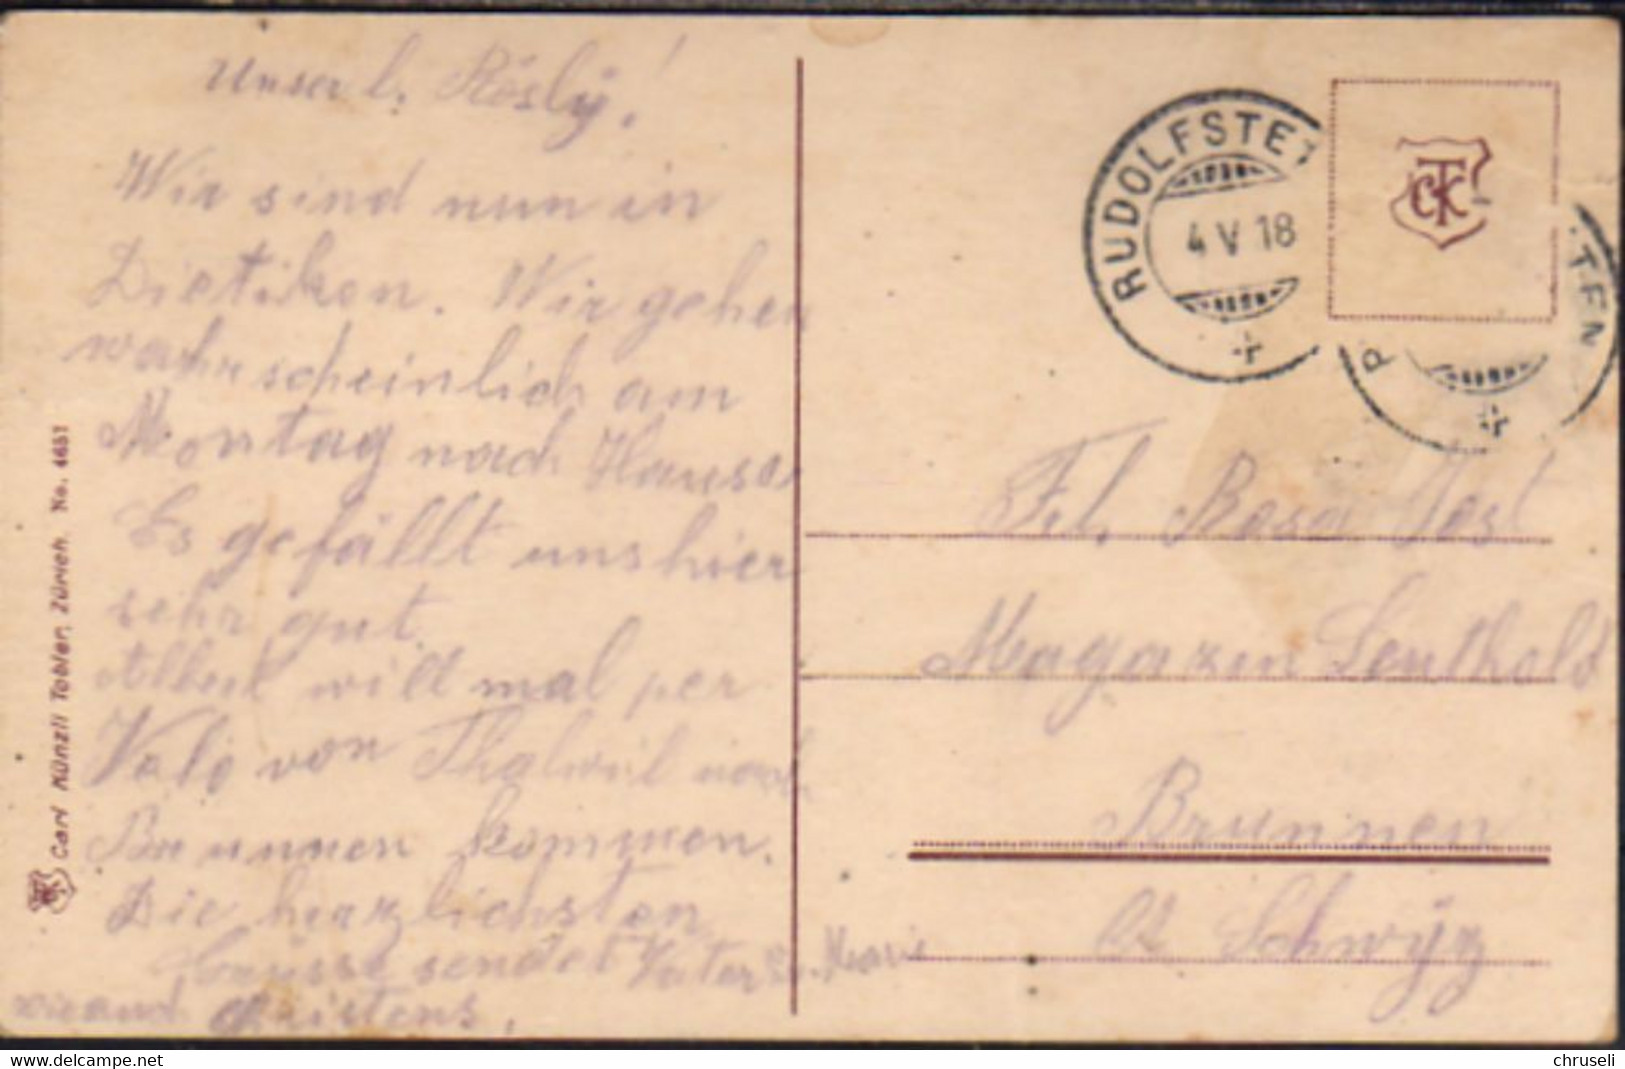 Unser l. Rösly!
Wir sind nun in
Dietikon. Wir gehen
wahrscheinlich am
Montag nach Hause.
Es gefällt uns hier
sehr gut.
Albert will mal per
Velo von Thalwil nach
Brunnen kommen.
Die herzlichsten
Grüsse sendet Vater u. Marie
wie auch Christens.
Carl Künzli Tobler, Zürich. No. 4651
RUDOLFSTE
4 V 18
CTK
TEN
Frl. Rosa Jost
Magazin Leuthold
Brunnen
Ct. Schwÿz
chruseli